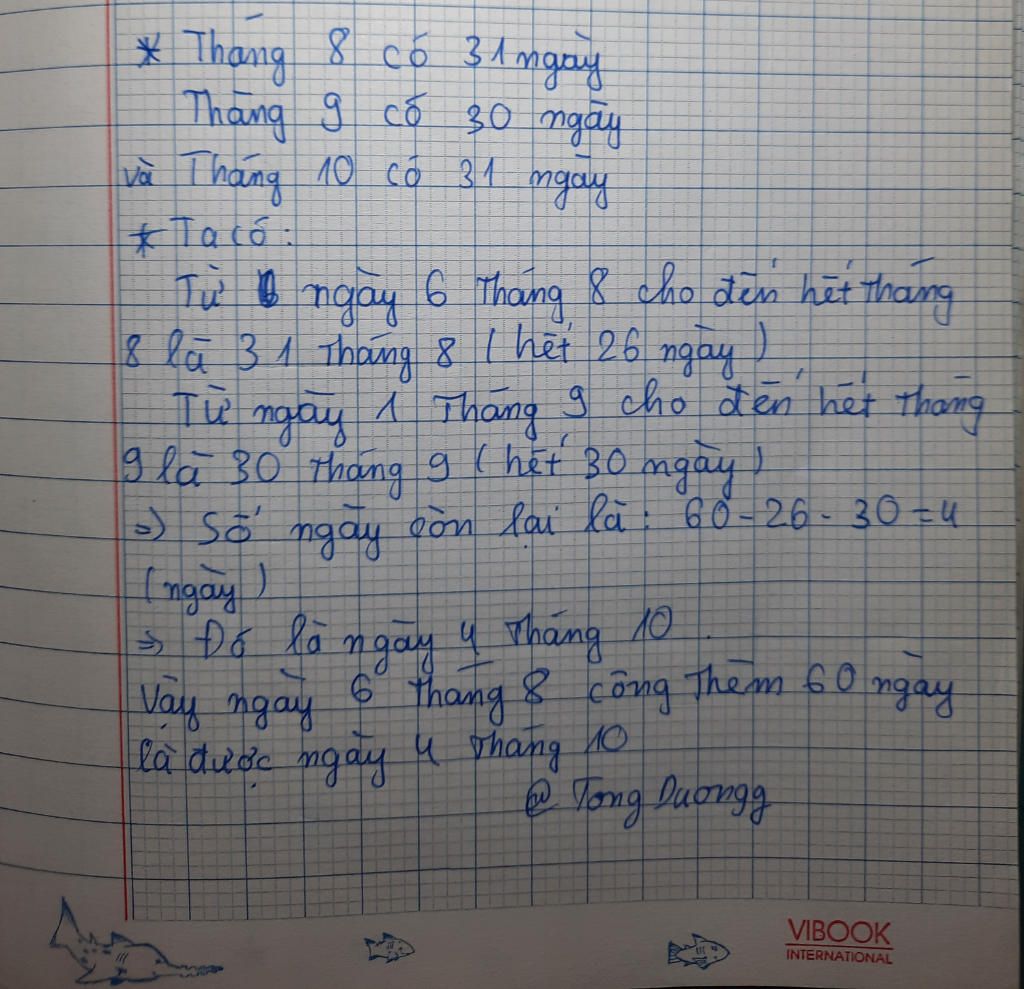 * Tháng 8 có 31 ngày
Tháng 9 có 30 ngày
và Tháng 10 có 31 ngày
* Ta có:
Từ ngày 6 tháng 8 cho đến hết tháng
8 là 31 tháng 8 (hết 26 ngày)
Từ ngày 1 tháng 9 cho đến hết tháng
9 là 30 tháng 9 (hết 30 ngày)
=> Số ngày còn lại là: 60 - 26 - 30 = 4
(ngày)
=> Đó là ngày 4 tháng 10.
Vậy ngày 6 tháng 8 cộng thêm 60 ngày
là được ngày 4 tháng 10
@ Tong Duongg
VIBOOK
INTERNATIONAL